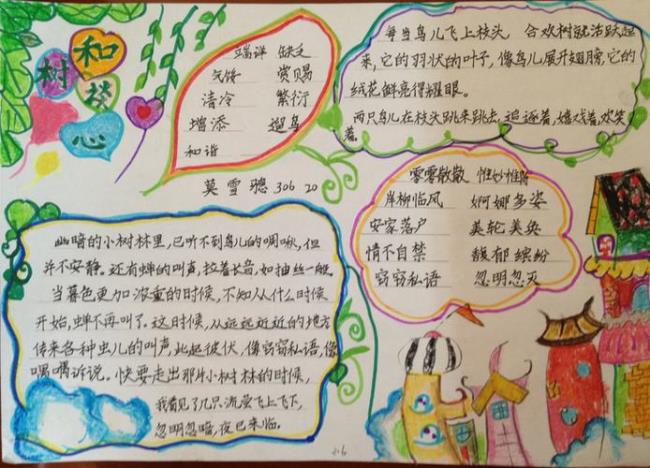 和谐
树
心
端详 缺乏
气馁 赏赐
清冷 繁衍
增添 遛鸟
和谐
莫雪璁 306 20
每当鸟儿飞上枝头 合欢树就活跃起
来,它的羽状的叶子,像鸟儿展开翅膀,它的
绒花鲜亮得耀眼。
两只鸟儿在枝头跳来跳去,追逐着,嬉戏着,欢笑
着。
零零散散 惟妙惟肖
岸柳临风 婀娜多姿
安家落户 美轮美奂
情不自禁 馥郁缤纷
窃窃私语 忽明忽灭
幽暗的小树林里,已听不到鸟儿的啁啾,但
并不安静。还有蝉的叫声,拉着长音,如抽丝一般。
当暮色更加浓重的时候,不知从什么时候
开始,蝉不再叫了。这时候,从远远近近的地方
传来各种虫儿的叫声,此起彼伏,像窃窃私语,像
喁喁诉说。快要走出那片小树林的时候,
我看见了几只流萤飞上飞下,
忽明忽暗,夜已来临。